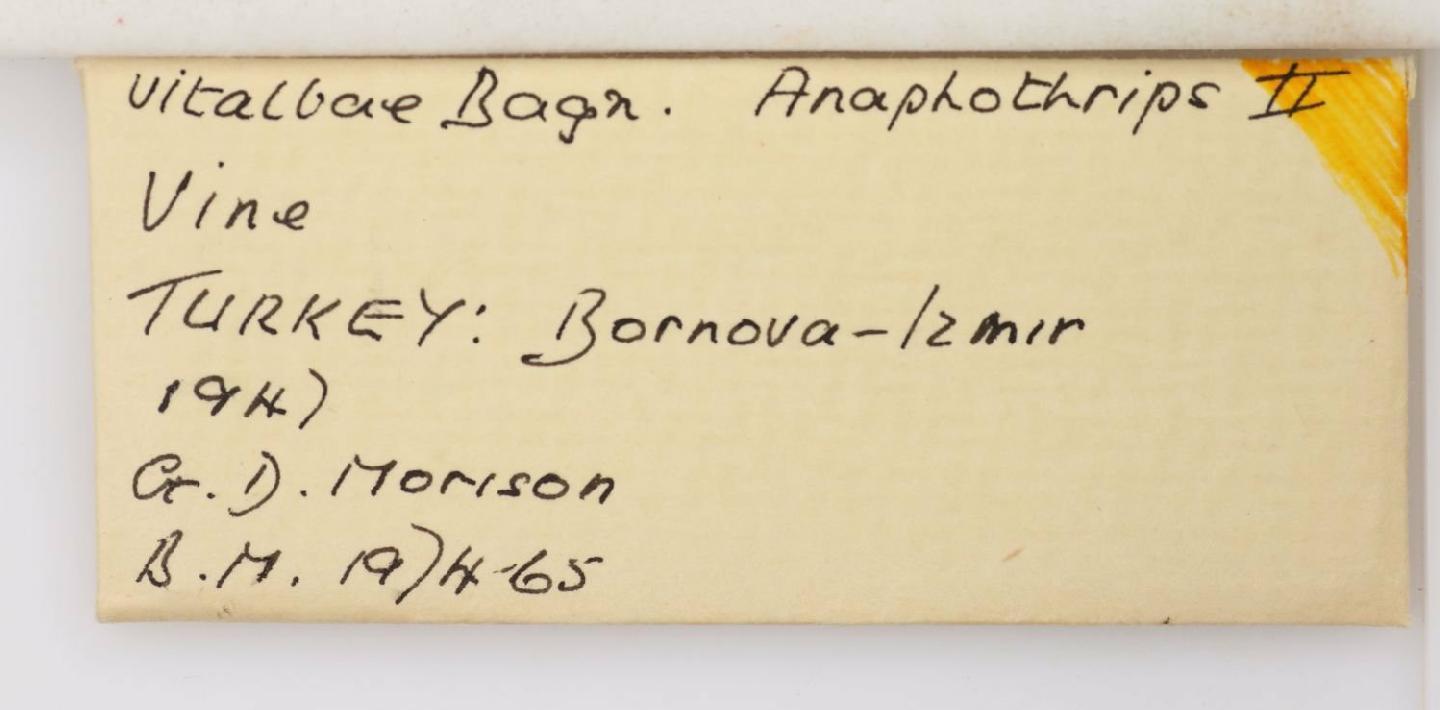 vitalbae Bagn. Anaphothrips II
Vine
TURKEY: Bornova-Izmir
1947
G. D. Morison
B.M. 1974-65